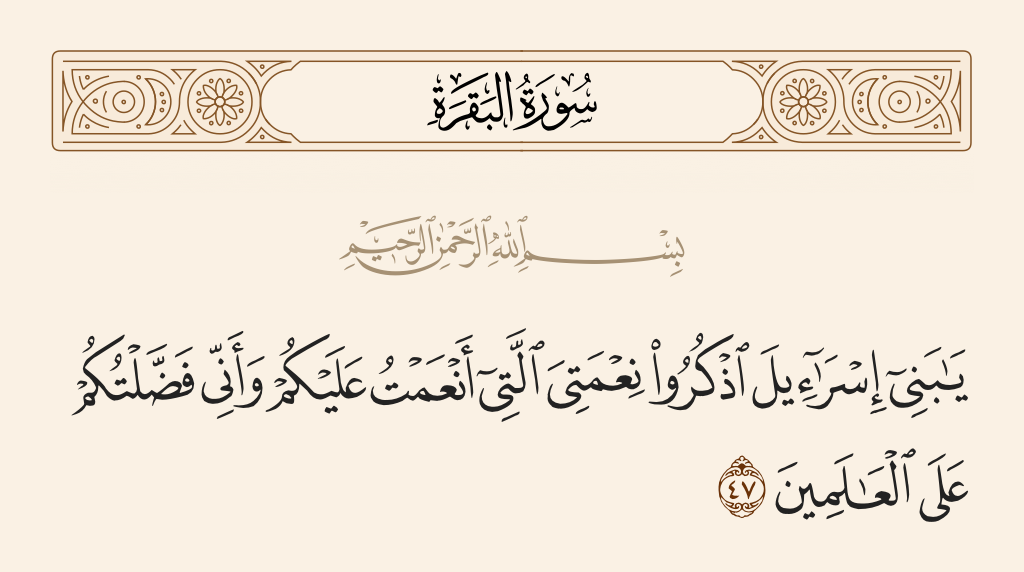 سُورَةُ البَقَرَةِ
بِسْمِ ٱللَّهِ ٱلرَّحْمَٰنِ ٱلرَّحِيمِ
يَـٰبَنِىٓ إِسْرَٰٓءِيلَ ٱذْكُرُوا۟ نِعْمَتِىَ ٱلَّتِىٓ أَنْعَمْتُ عَلَيْكُمْ وَأَنِّى فَضَّلْتُكُمْ
عَلَى ٱلْعَـٰلَمِينَ ٤٧